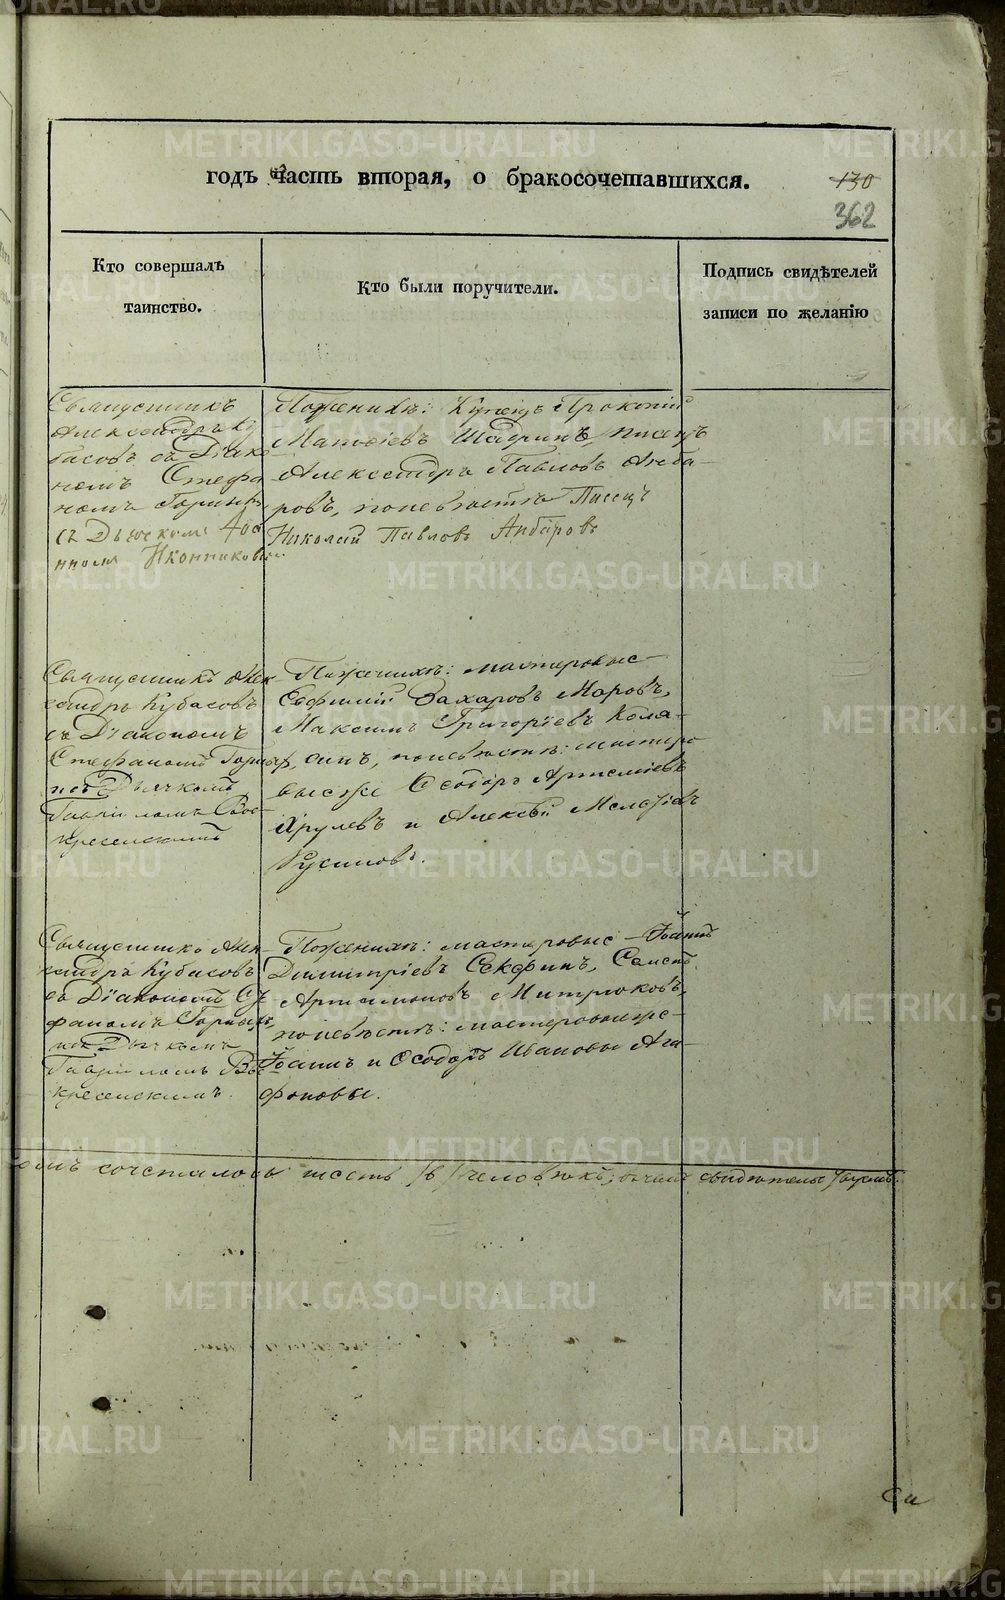 годъ часть вторая, о бракосочетавшихся.
130
362
Кто совершалъ
таинство.
Кто были поручители.
Подпись свидѣтелей
записи по желанію
Священникъ
Александръ Ку
басовъ съ Діако
номъ Стефа
номъ Горным
съ Дьячкомъ Іоа
нномъ Иконниковым
По женихѣ: Купецъ Прокопій
Матѳіевъ Шадринъ, писецъ
Александръ Павловъ Анба-
ровъ, по невѣстѣ Писецъ
Николай Павловъ Анбаровъ
Священникъ Алек
сандръ Кубасовъ
съ Діакономъ
Стефаномъ Горным,
Дьячкомъ
Гавріиломъ Вос
кресенскимъ
По женихѣ: мастеровые
Евфимій Захаровъ Маровъ,
Максимъ Григоріевъ Кола-
, по невѣстѣ: мастеро
выеже Ѳеодоръ Артеміевъ
Хрулевъ и Алексѣй
Русиновъ.
Священникъ Алек
сандръ Кубасовъ
съ Діакономъ Сте
фаномъ Горнымъ,
Дьячкомъ
Гавріиломъ Вос
кресенскимъ.
По женихѣ: мастеровые Іоаннъ
Димитріевъ Секѳинъ,
Артамоновъ Митрюковъ,
по невѣстѣ: мастеровыеже
Іоаннъ и Ѳеодоръ Ивановы Ага-
фоновы.
сочеталось шесть /6/ человѣкъ; въ чемъ свидѣтельствуемъ.
METRIKI.GASO-URAL.RU